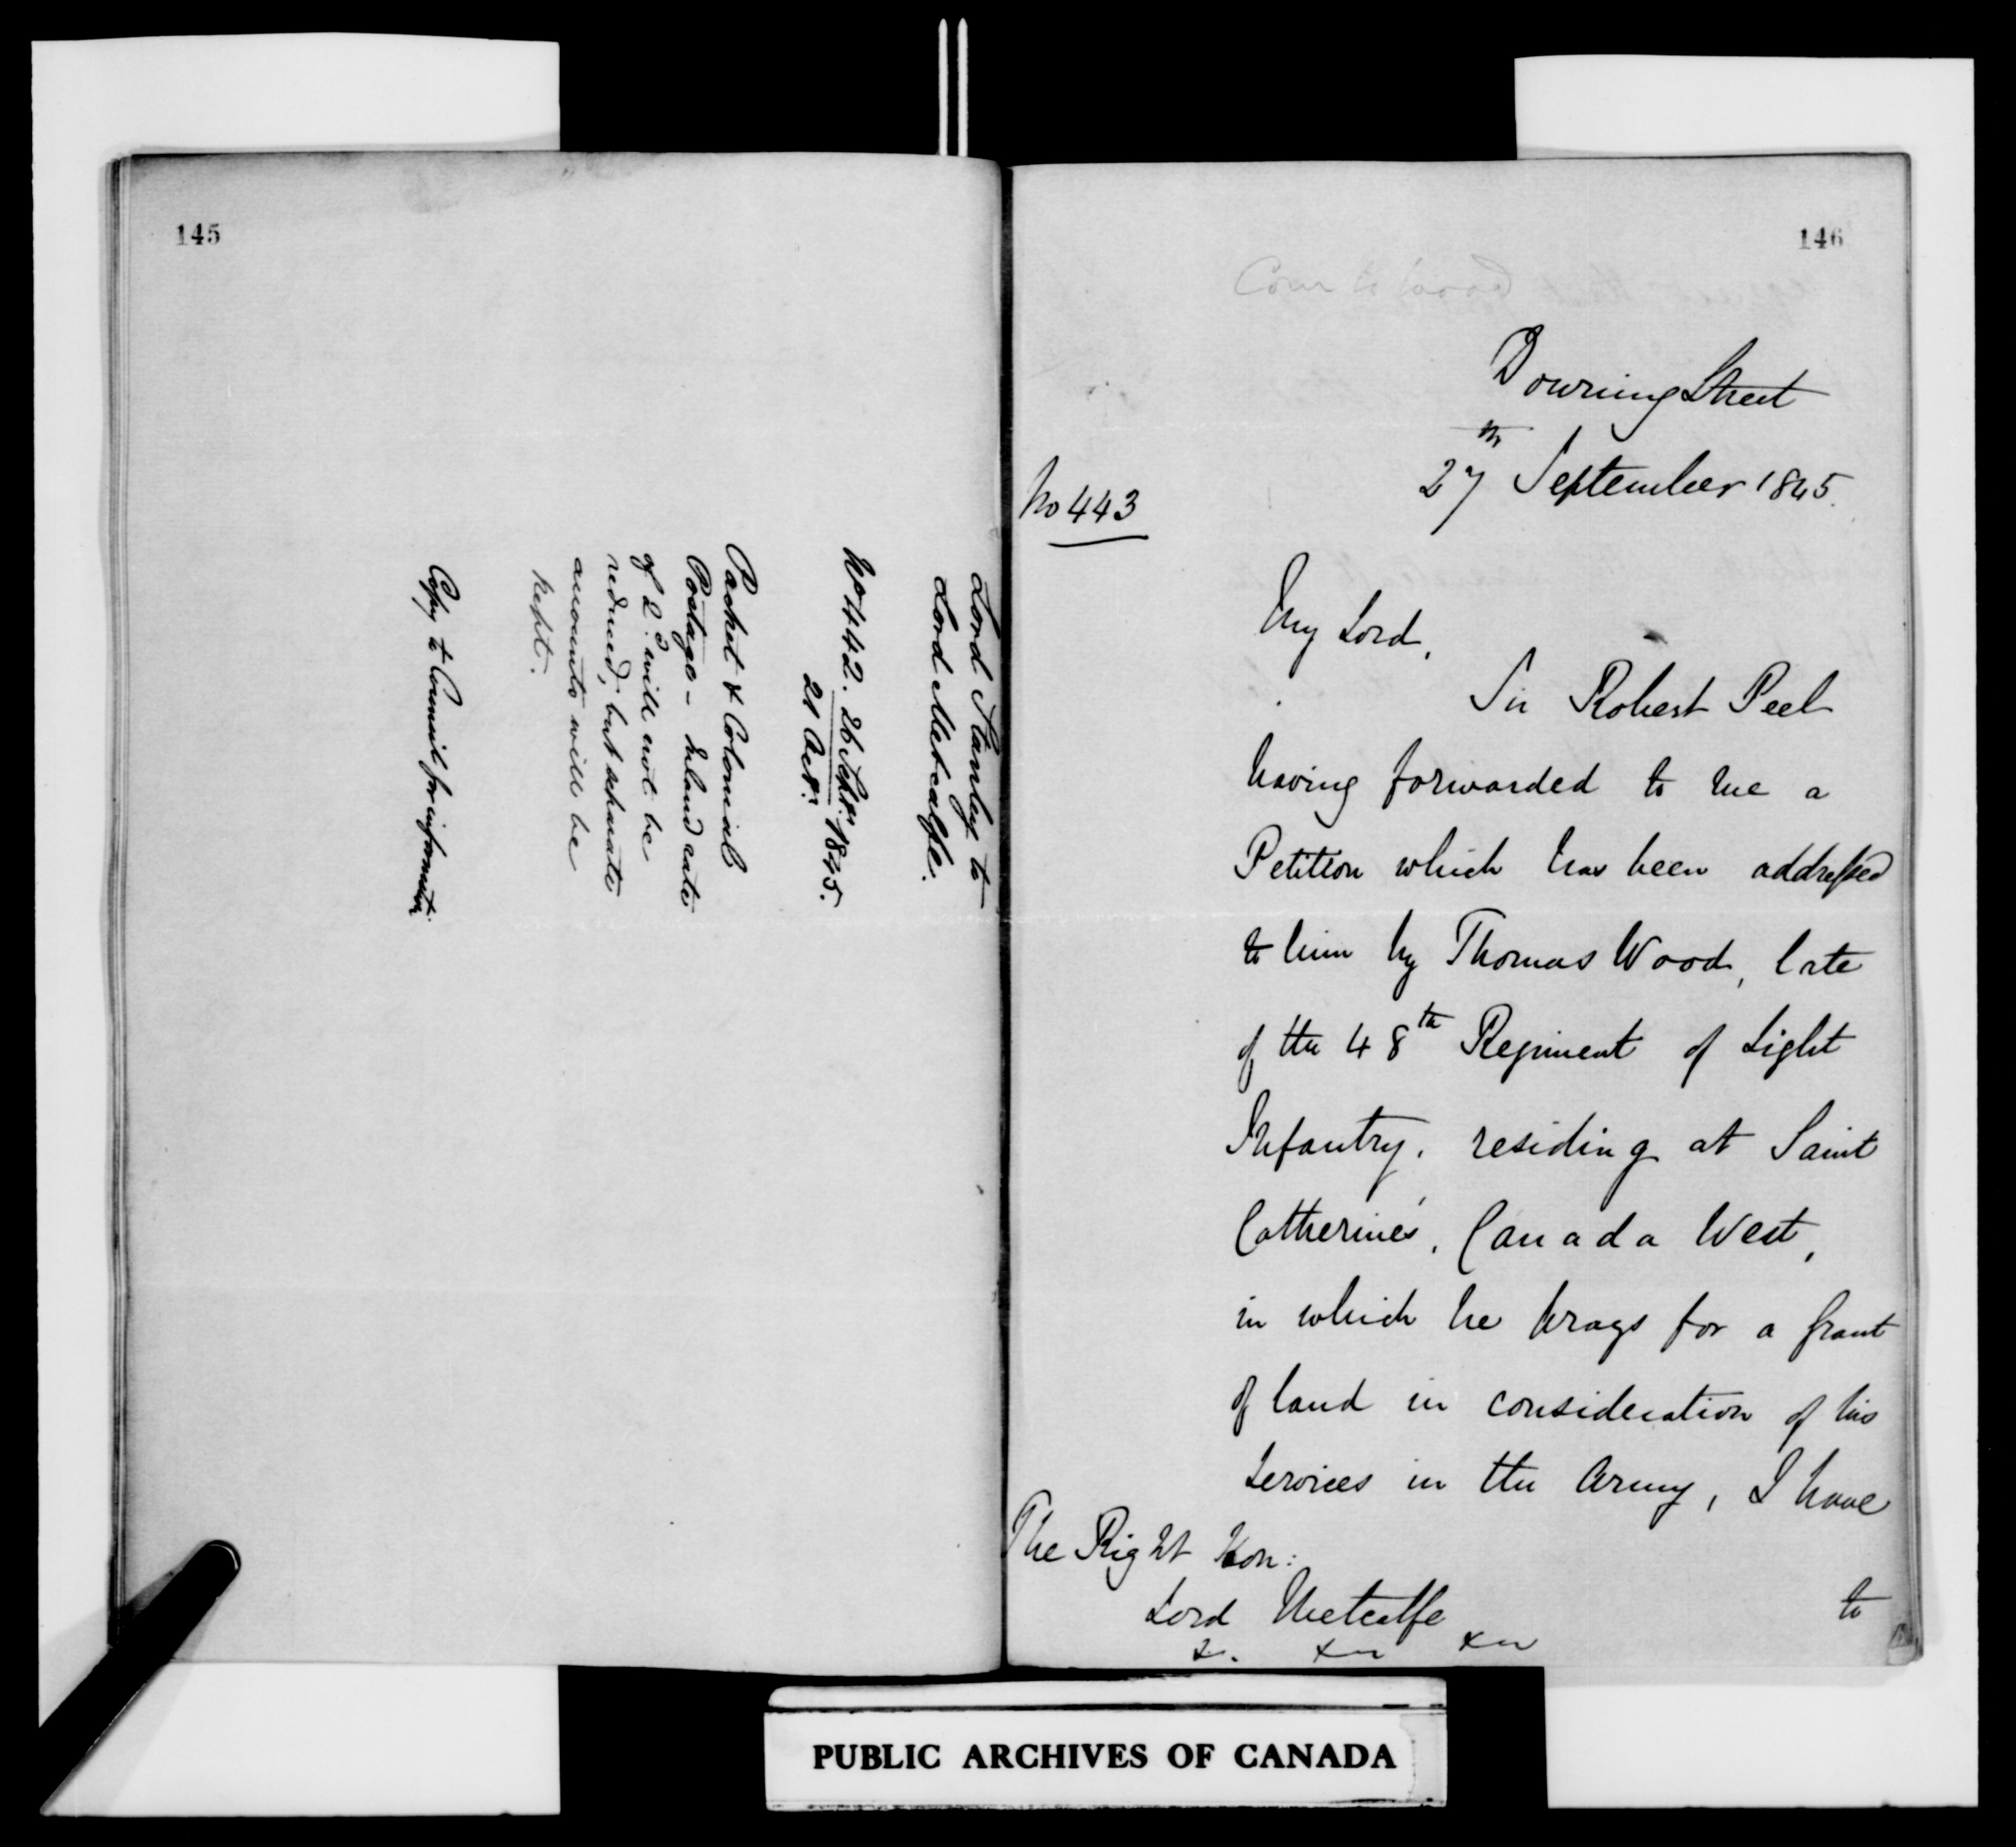 145
Lord Stanley to
Lord Metcalfe.
No 442. 26 Septr. 1845.
21 Octr.
Packet & Colonial
Postage - Inland rate
of 2d. will not be
reduced, but separate
accounts will be
kept.
Copy to Council for information
146
Downing Street
27th September 1845.
No 443
My Lord,
Sir Robert Peel
having forwarded to me a
Petition which has been addressed
to him by Thomas Wood, late
of the 48th Regiment of Light
Infantry, residing at Saint
Catherine's, Canada West,
in which he prays for a grant
of land in consideration of his
services in the Army, I have
The Right Hon:
Lord Metcalfe
to
&c. &c &c
PUBLIC ARCHIVES OF CANADA